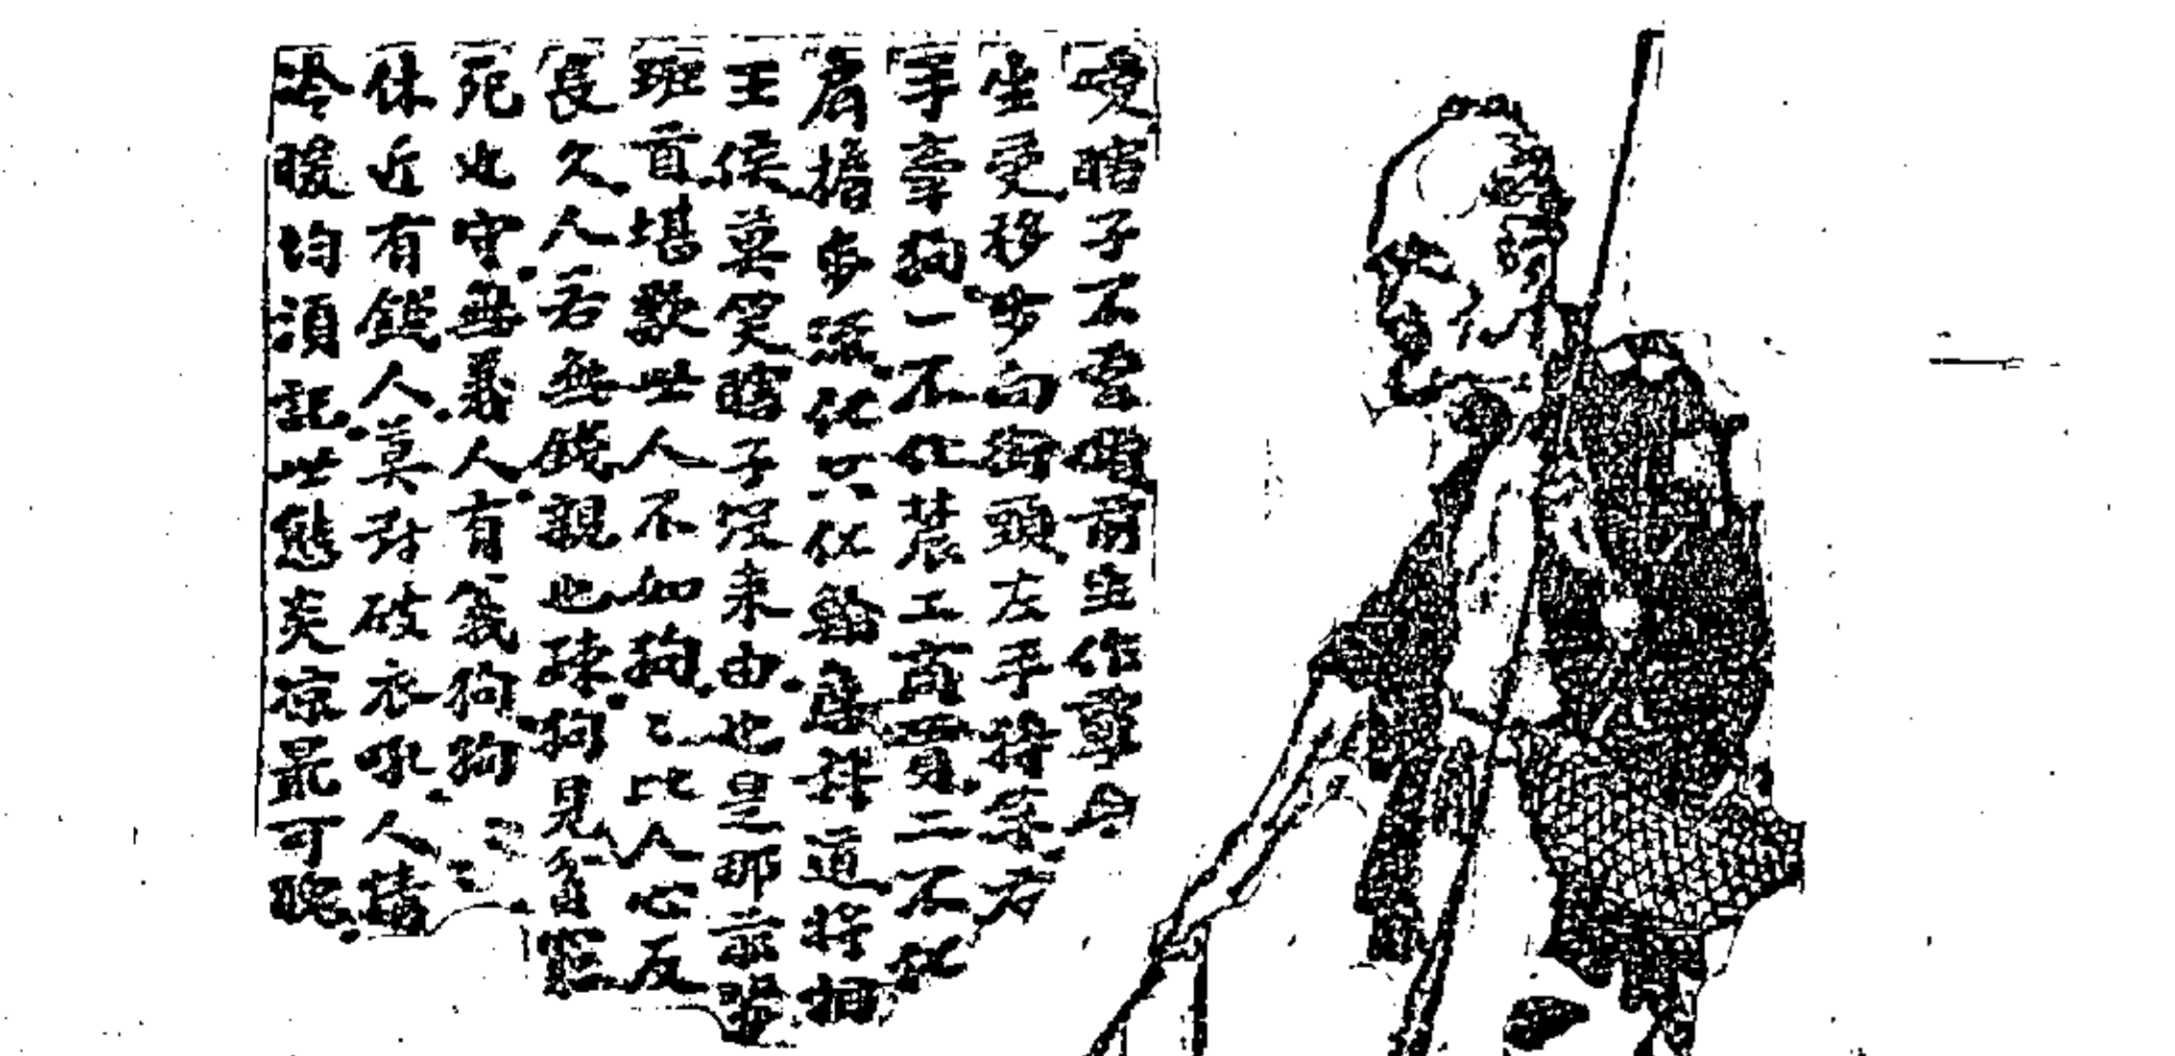 瞎子不前生作孽今
生受移步向街頭左手持竿右
手牽狗一不化農工商賈二不化
肩擔步流化只化科道將相
王侯莫笑瞎子沒來由也是那前
班首堪歎世人不如狗〻比人心反
長久人若無錢親也疎狗見貧窮
死也守無義人有義狗狗
休近有錢人莫對破衣吼人情
冷暖均須記世態炎凉最可醜